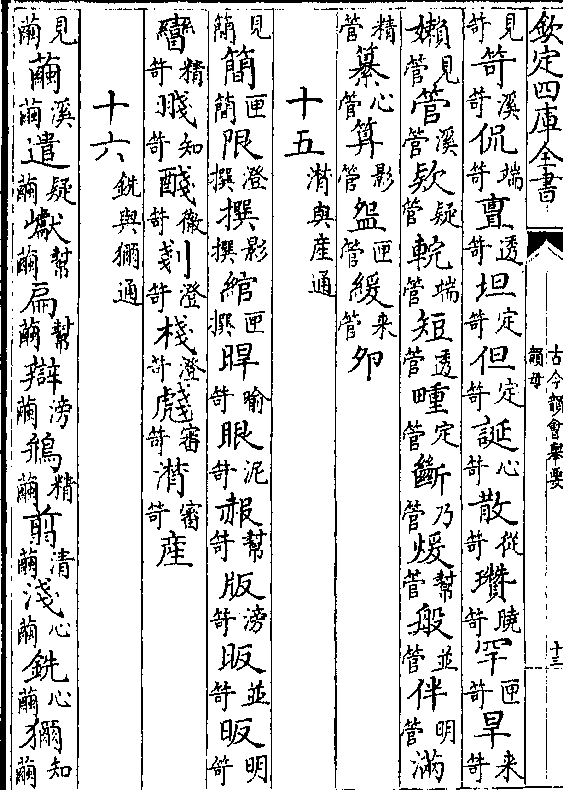 欽定四庫全書
古今韻會舉要
韻母
十三
見笴笴溪笴侃端笴亶透笴坦定笴但定笴誕心笴散從笴瓚曉笴罕匣笴旱来笴
嬾見管管溪管欵疑管輐端管短透管疃定管斷乃管煖幫管般並管伴明管滿
精管纂心管算影管盌匣管緩来管卵
十五潸與産通
見簡簡匣簡限澄撰撰影撰綰匣撰睅喻笴眼泥笴赧幫笴版滂笴眅並笴昄明笴
矕精笴琖知笴醆徹笴剗澄笴棧澄笴虥審笴潸審笴産
十六銑與獮通
見繭繭溪繭遣疑繭巘幫繭扁幫繭辯滂繭鴘精繭剪清繭淺心繭銑心繭獮知繭